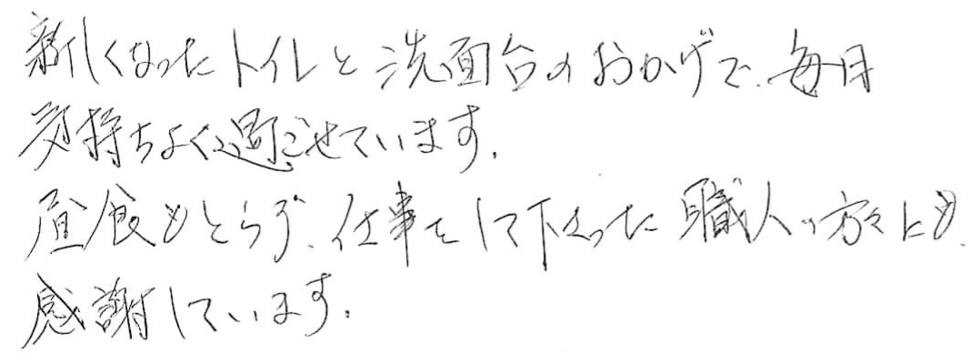 新しくなったトイレと洗面台のおかげで、毎日
気持ちよく過ごせています。
昼食もとらず、仕事をして下さった職人の方々にも
感謝しています。